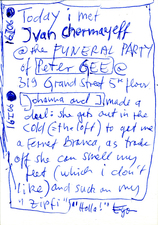 Today i met
Ivan chermayeff
@ the FUNERAL PARTY
of Peter GEE @
319 Grand street 5th floor
Johanna and I made a
deal: she gets out in the
cold (= the loft) to get me
a Fernet Branca, as trade
off she can smell my
feet (which i don't
like) and suck on my
"Zipfi" "Holla!"